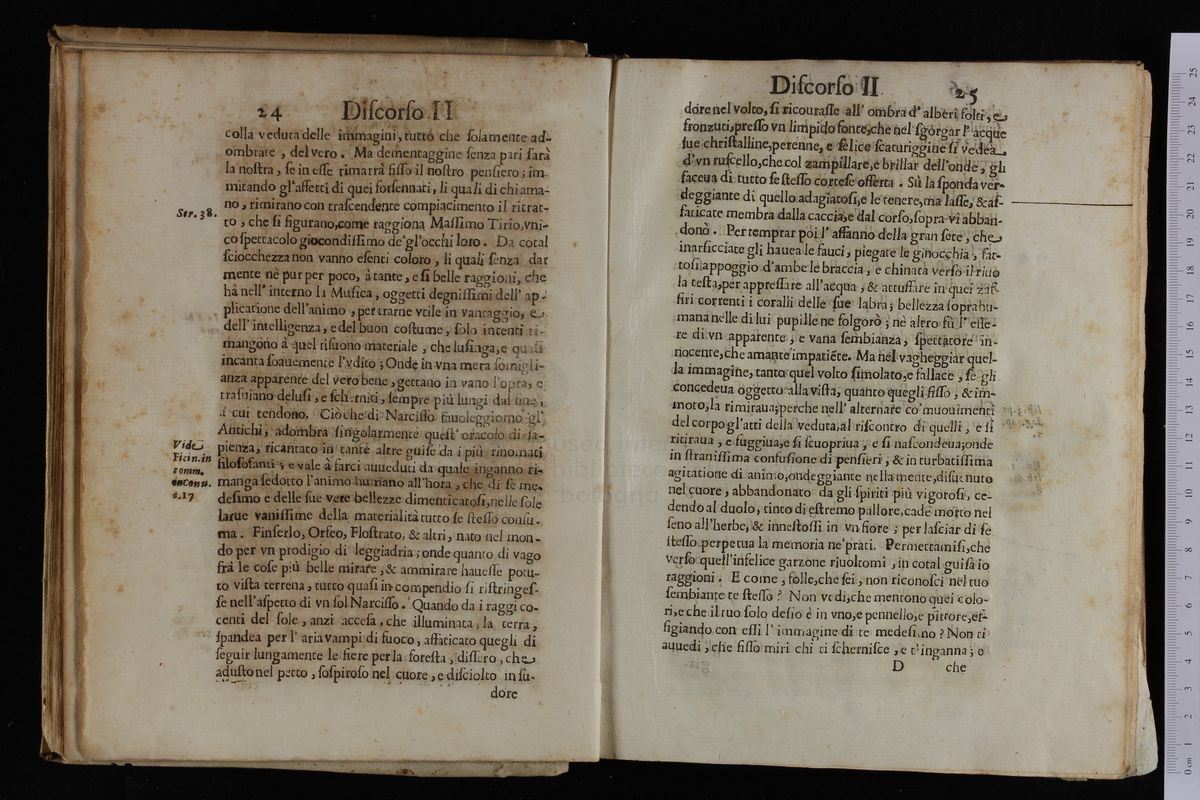 24 Diſcorſo II
colla veduta delle immagini, tutto che ſolamente ad-
ombrate, del vero. Ma dementaggine ſenza pari ſarà
la noſtra, ſe in eſſe rimarrà fiſſo il noſtro penſiero; im-
mitando gl'affetti di quei forſennati, li quali di chi ama-
no, rimirano con traſcendente compiacimento il ritrat-
Ser. 38.
to, che ſi figurano, come raggiona Maſſimo Tirio, vni-
co ſpettacolo giocondiſſimo de'gl'occhi loro. Da cotal
ſciocchezza non vanno eſenti coloro, li quali ſenza dar
mente nè pur per poco, à tante, e ſi belle raggioni, che
hà nell' interno la Muſica, oggetti degniſſimi dell' ap-
plicatione dell'animo, per trarne vtile in vantaggio, e
dell' intelligenza, e del buon coſtume, ſolo intenti ri-
mangono à quel riſuono materiale, che luſinga, e quaſi
incanta ſoauemente l'vdito; Onde in vna mera ſomigli-
anza apparente del vero bene, gettano in vano l'opra, e
traſuiano deluſi, e ſcherniti, ſempre più lungi dal fine,
à cui tendono. Ciò che di Narciſſo fauoleggiorno gl'
Antichi, adombra ſingolarmente queſt' oracolo di ſa-
Vide
Ficin. in
comm.
in conu.
c. 17
pienza, ricantato in tante altre guiſe da i più rinomati
filoſofanti; e vale à farci auueduti da quale inganno ri-
manga ſedotto l'animo humano all'hora, che di ſe me-
deſimo e delle ſue vere bellezze dimenticatoſi, nelle ſole
larue vaniſſime della materialità tutto ſe ſteſſo conſu-
ma. Finſerlo, Orfeo, Filoſtrato, & altri, nato nel mon-
do per vn prodigio di leggiadria; onde quanto di vago
frà le coſe più belle mirare, & ammirare haueſſe potu-
to viſta terrena, tutto quaſi in compendio ſi riſtringeſ-
ſe nell'aſpetto di vn ſol Narciſſo. Quando da i raggi co-
centi del ſole, anzi acceſa, che illuminata, la terra,
ſpandea per l' aria vampi di fuoco, affaticato quegli di
ſeguir lungamente le fiere per la foreſta, diſſero, che
aduſto nel petto, ſoſpiroſo nel cuore, e diſciolto in ſu-
dore
Diſcorſo II 25
dore nel volto, ſi ricouraſſe all' ombra d' alberi folti, e
fronzuti, preſſo vn limpido fonte, che nel ſgorgar l' acque
ſue chriſtalline, perenne, e felice ſcaturiggine ſi vedea
d'vn ruſcello, che col zampillare, e brillar dell'onde, gli
faceua di tutto ſe ſteſſo corteſe offerta. Sù la ſponda ver-
deggiante di quello adagiatoſi, e le tenere, ma laſſe, & af-
faticate membra dalla caccia, e dal corſo, ſopra vi abban-
donò. Per temprar poi l' affanno della gran ſete, che
inarſicciate gli hauea le fauci, piegate le ginocchia, fat-
toſi appoggio d'ambe le braccia, e chinata verſo il riuo
la teſta, per appreſſare all'acqua, & attuffare in quei zaf-
firi correnti i coralli delle ſue labra; bellezza ſoprahu-
mana nelle di lui pupille ne folgorò; nè altro fù l' eſſe-
re di vn apparente, e vana ſembianza, ſpettatore in-
nocente, che amante impatiēte. Ma nel vagheggiar quel-
la immagine, tanto quel volto ſimolato, e fallace, ſe gli
concedeua oggetto alla viſta, quanto quegli fiſſo, & im-
moto, la rimiraua; perche nell' alternare co'muouimenti
del corpo gl'atti della veduta, al riſcontro di quelli, e ſi
ritiraua, e fuggiua, e ſi ſcuopriua, e ſi naſcondeua; onde
in ſtraniſſima confuſione di penſieri, & in turbatiſſima
agitatione di animo, ondeggiante nella mente, diſuenuto
nel cuore, abbandonato da gli ſpiriti più vigoroſi, ce-
dendo al duolo, tinto di eſtremo pallore, cade morto nel
ſeno all'herbe, & inneſtoſſi in vn fiore; per laſciar di ſe
ſteſſo perpetua la memoria ne'prati. Permettamiſi, che
verſo quell'infelice garzone riuoltomi, in cotal guiſa io
raggioni. E come, folle, che ſei, non riconoſci nel tuo
ſembiante te ſteſſo? Non vedi, che mentono quei colo-
ri, e che il tuo ſolo deſio è in vno, e pennello, e pittore, ef-
figiando con eſſi l' immagine di te medeſimo? Non ti
auuedi, che fiſſo miri chi ti ſcherniſce, e t'inganna; e
D che